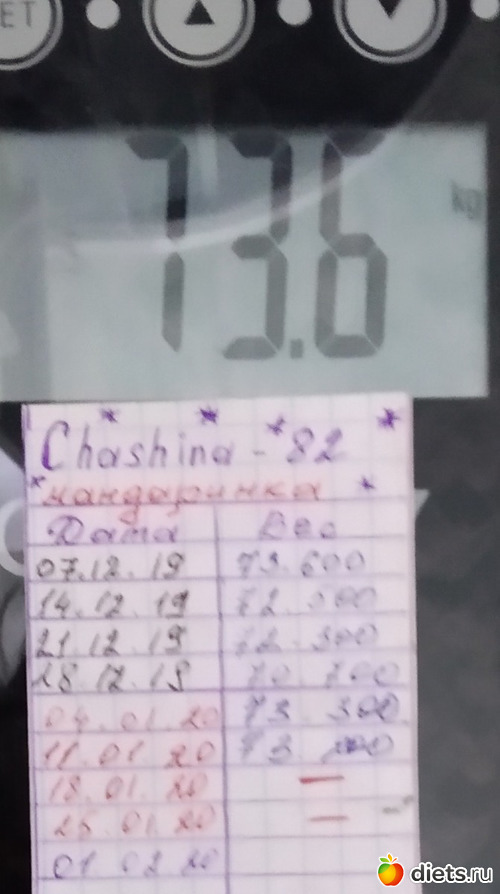 ET
73.6
kg
Chashina-82
мандаринка
Дата Вес
07.12.19 73.600
14.12.19
21.12.19 72.300
28.12.19 70.700
04.01.20 73.300
11.01.20
18.01.20 —
25.01.20 —
01.02.20
diets.ru